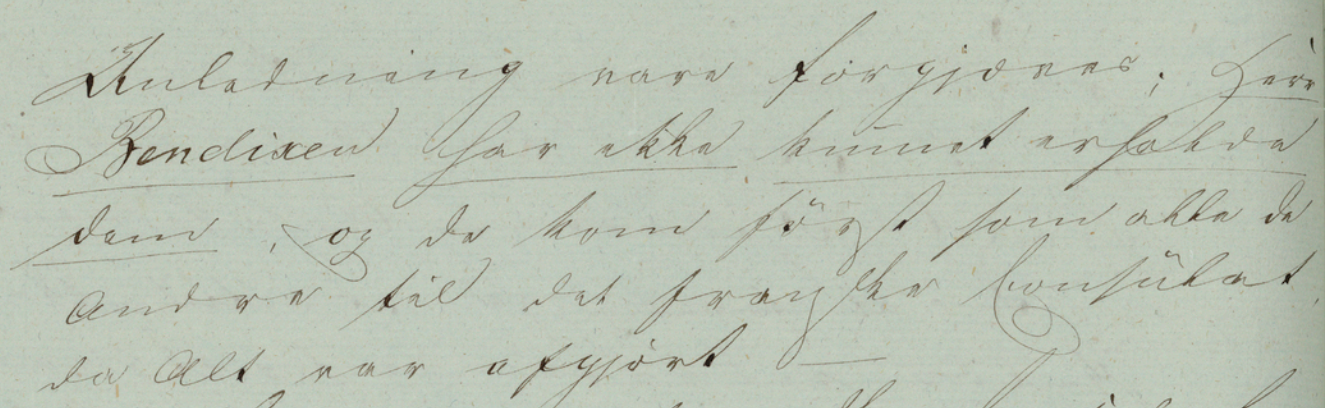 Anledning vare forgjæves; Herr
Bendixen har ikke kunnet erholde
dem, og de kom först som alle de
Andre til det franske Consulat,
da Alt var afgjört —